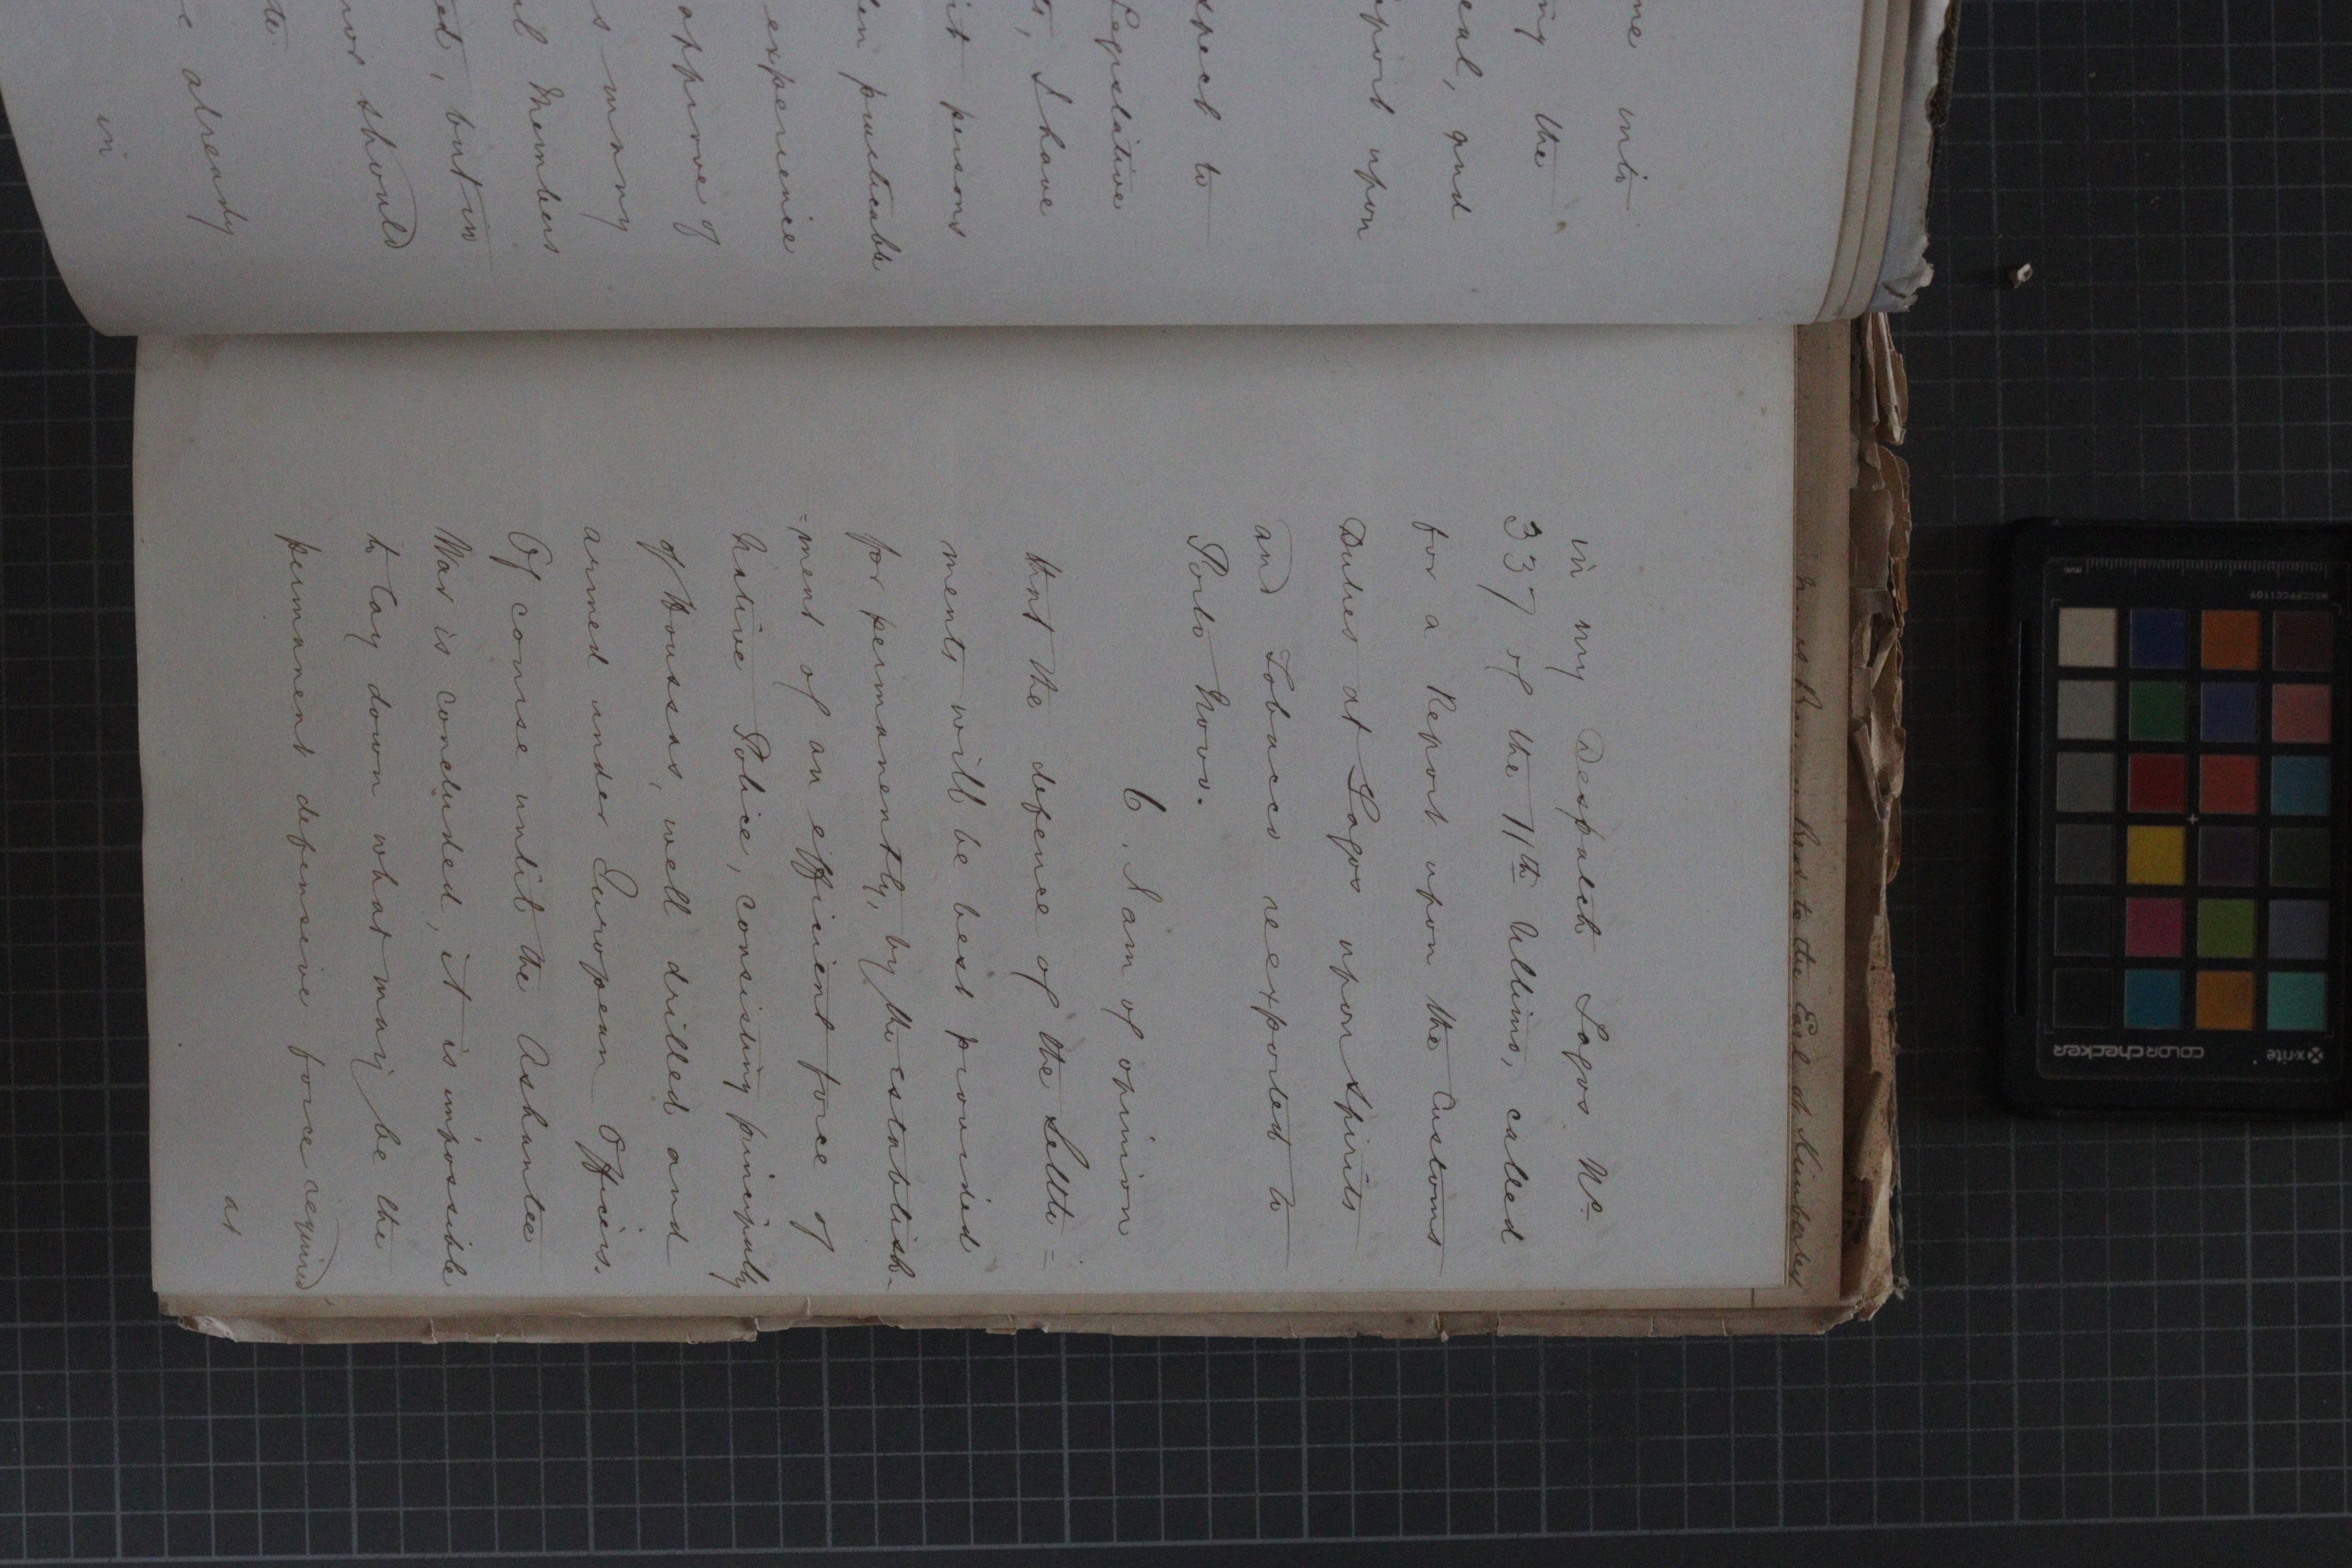 me into
ng the
eal, and
port upon
spect to
Legislative
ts, I have
it persons
en practicable
experience
approve of
s many
al Members
ed, but in
nor should
te.
e already
in
in my Despatch Lagos No
337 of the 11th Ultimo, called
for a Report upon the Customs
Duties at Lagos upon Spirits
and Tobacco reexported to
Porto Novo.
6. I am of opinion
that the defence of the Settle=
ments will be best provided
for permanently, by the establish-
=ment of an efficient force of
Native Police, consisting principally
of Houssas, well drilled and
armed under European Officers.
Of course until the Ashantee
War is concluded, it is impossible
to lay down what may be the
permanent defensive force required,
as
to the Earl of Kimberley
x-rite
colorchecker
MSCCPPCC1109
mm